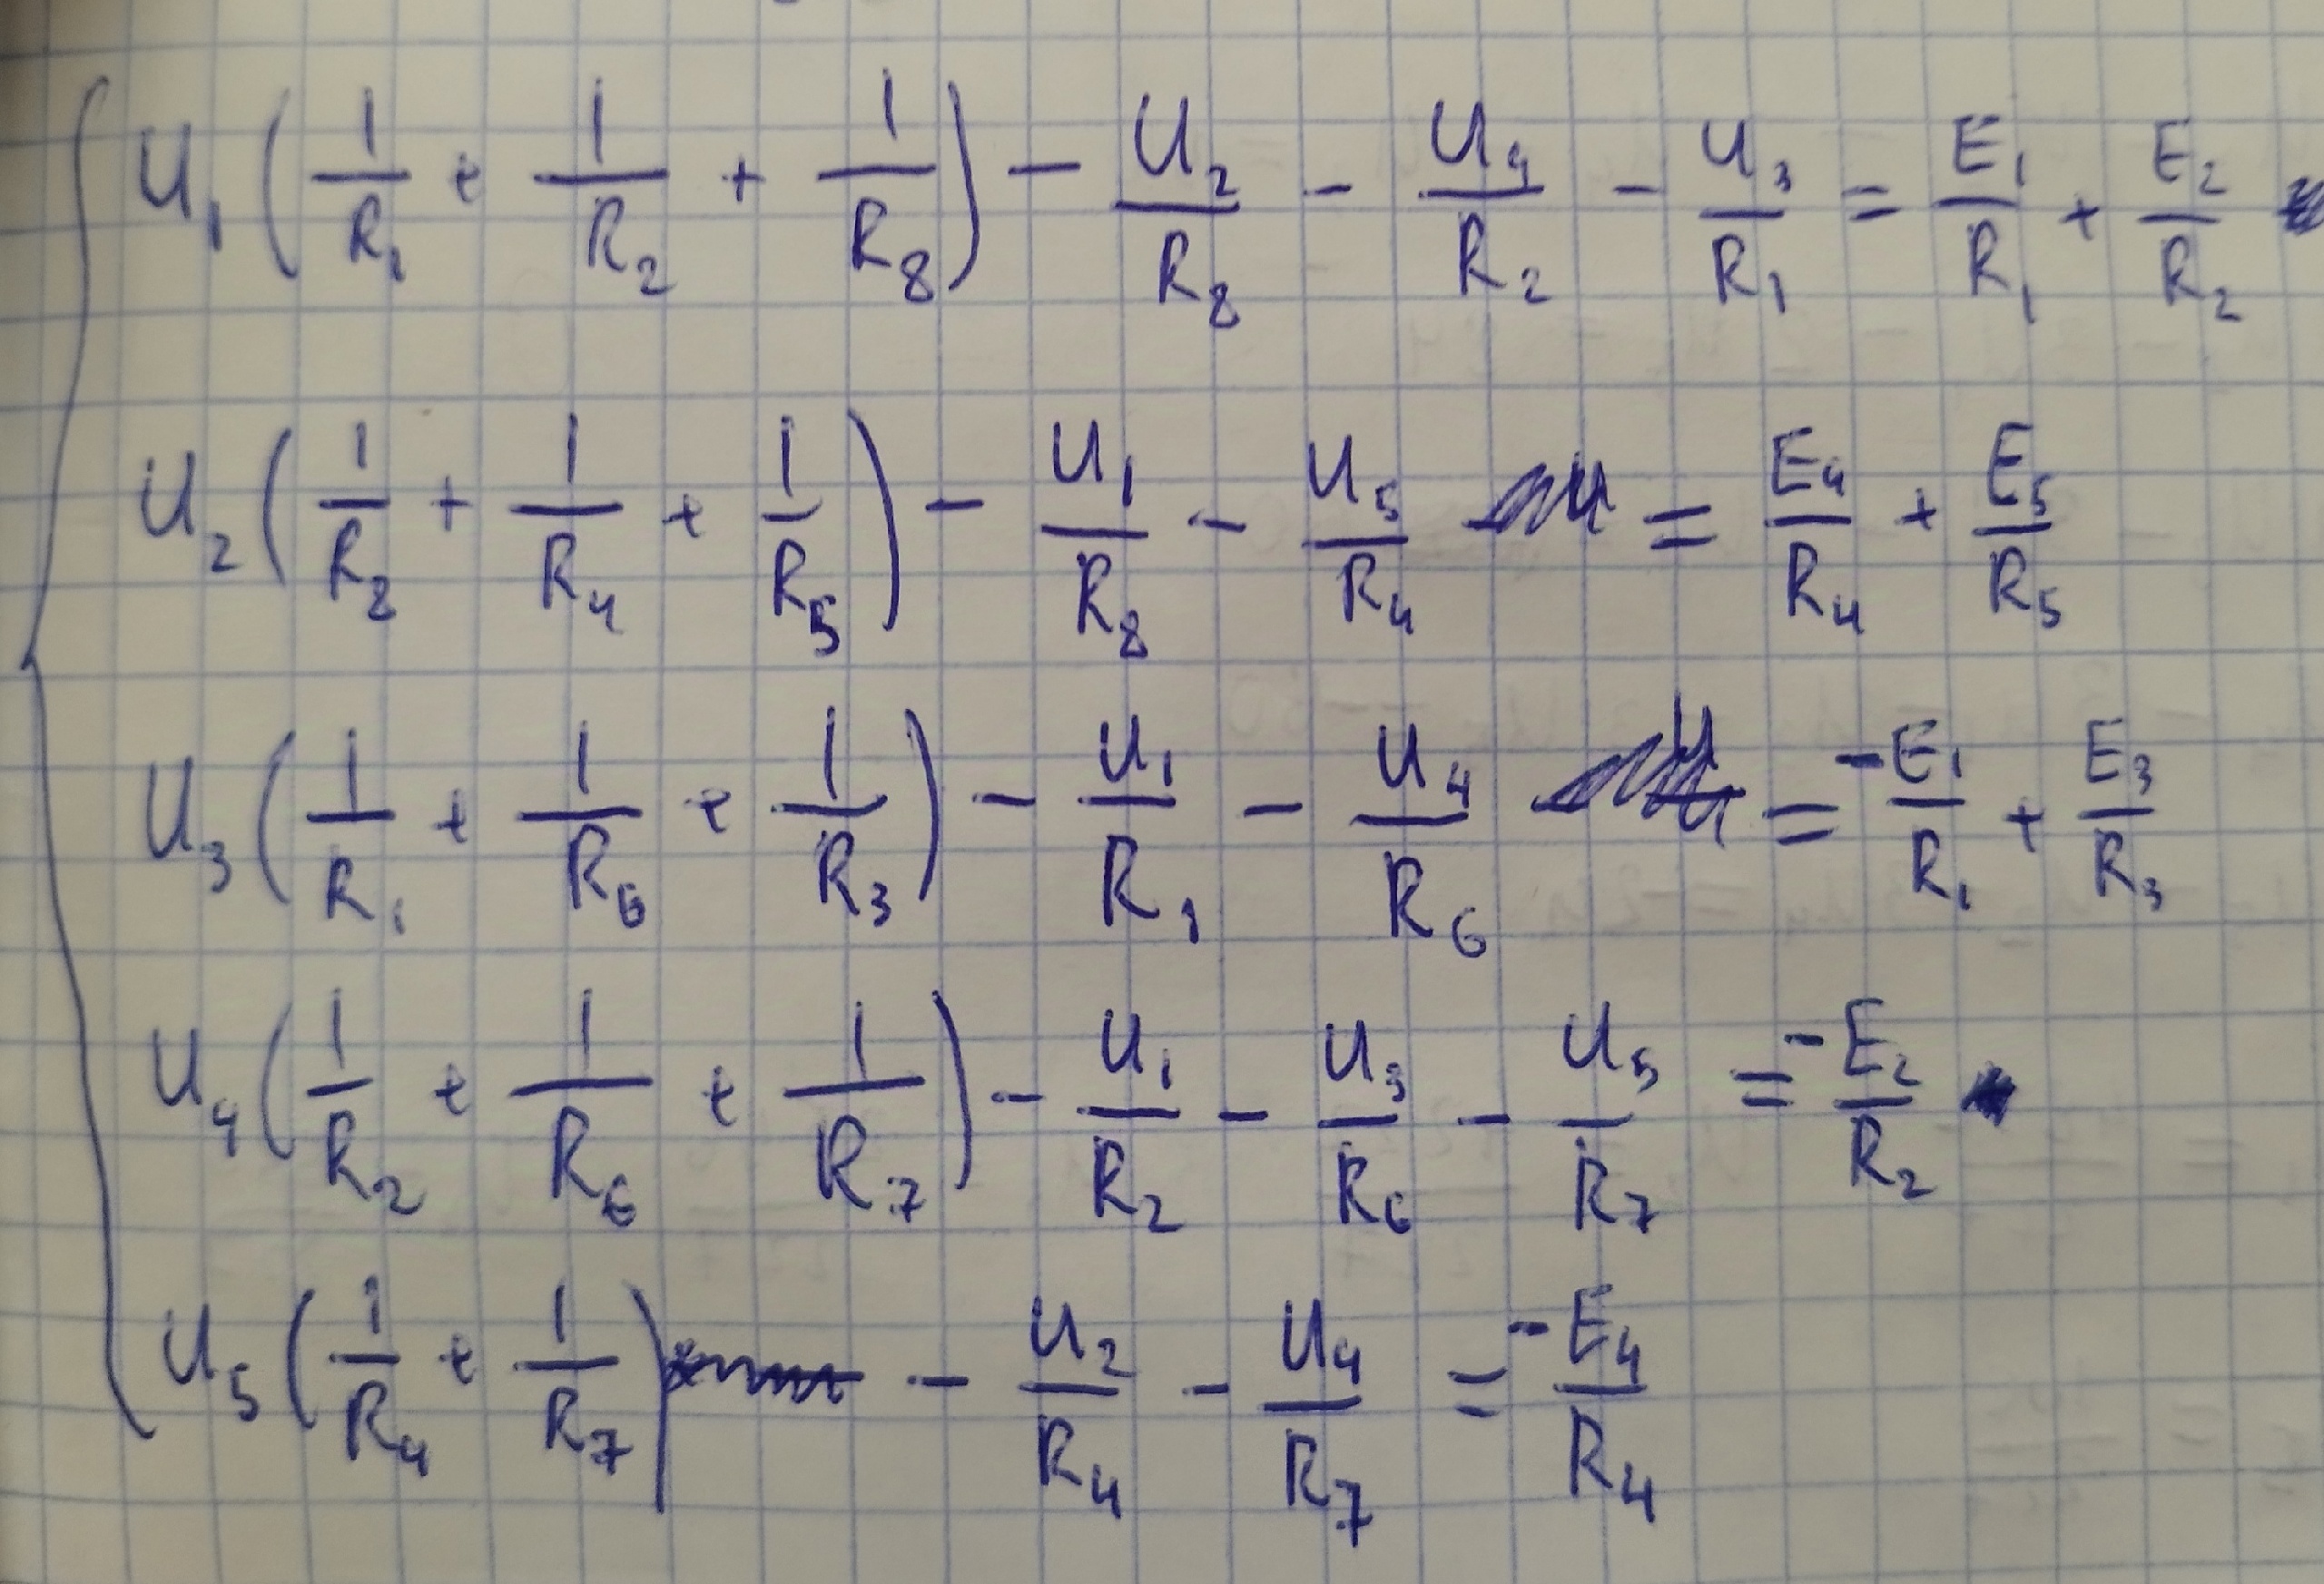 U₁(1/R₁ + 1/R₂ + 1/R₈) - U₂/R₈ - U₄/R₂ - U₃/R₁ = E₁/R₁ + E₂/R₂
U₂(1/R₈ + 1/R₄ + 1/R₅) - U₁/R₈ - U₅/R₄ = E₄/R₄ + E₅/R₅
U₃(1/R₁ + 1/R₆ + 1/R₃) - U₁/R₁ - U₄/R₆ = -E₁/R₁ + E₃/R₃
U₄(1/R₂ + 1/R₆ + 1/R₇) - U₁/R₂ - U₃/R₆ - U₅/R₇ = -E₂/R₂
U₅(1/R₄ + 1/R₇) - U₂/R₄ - U₄/R₇ = -E₄/R₄